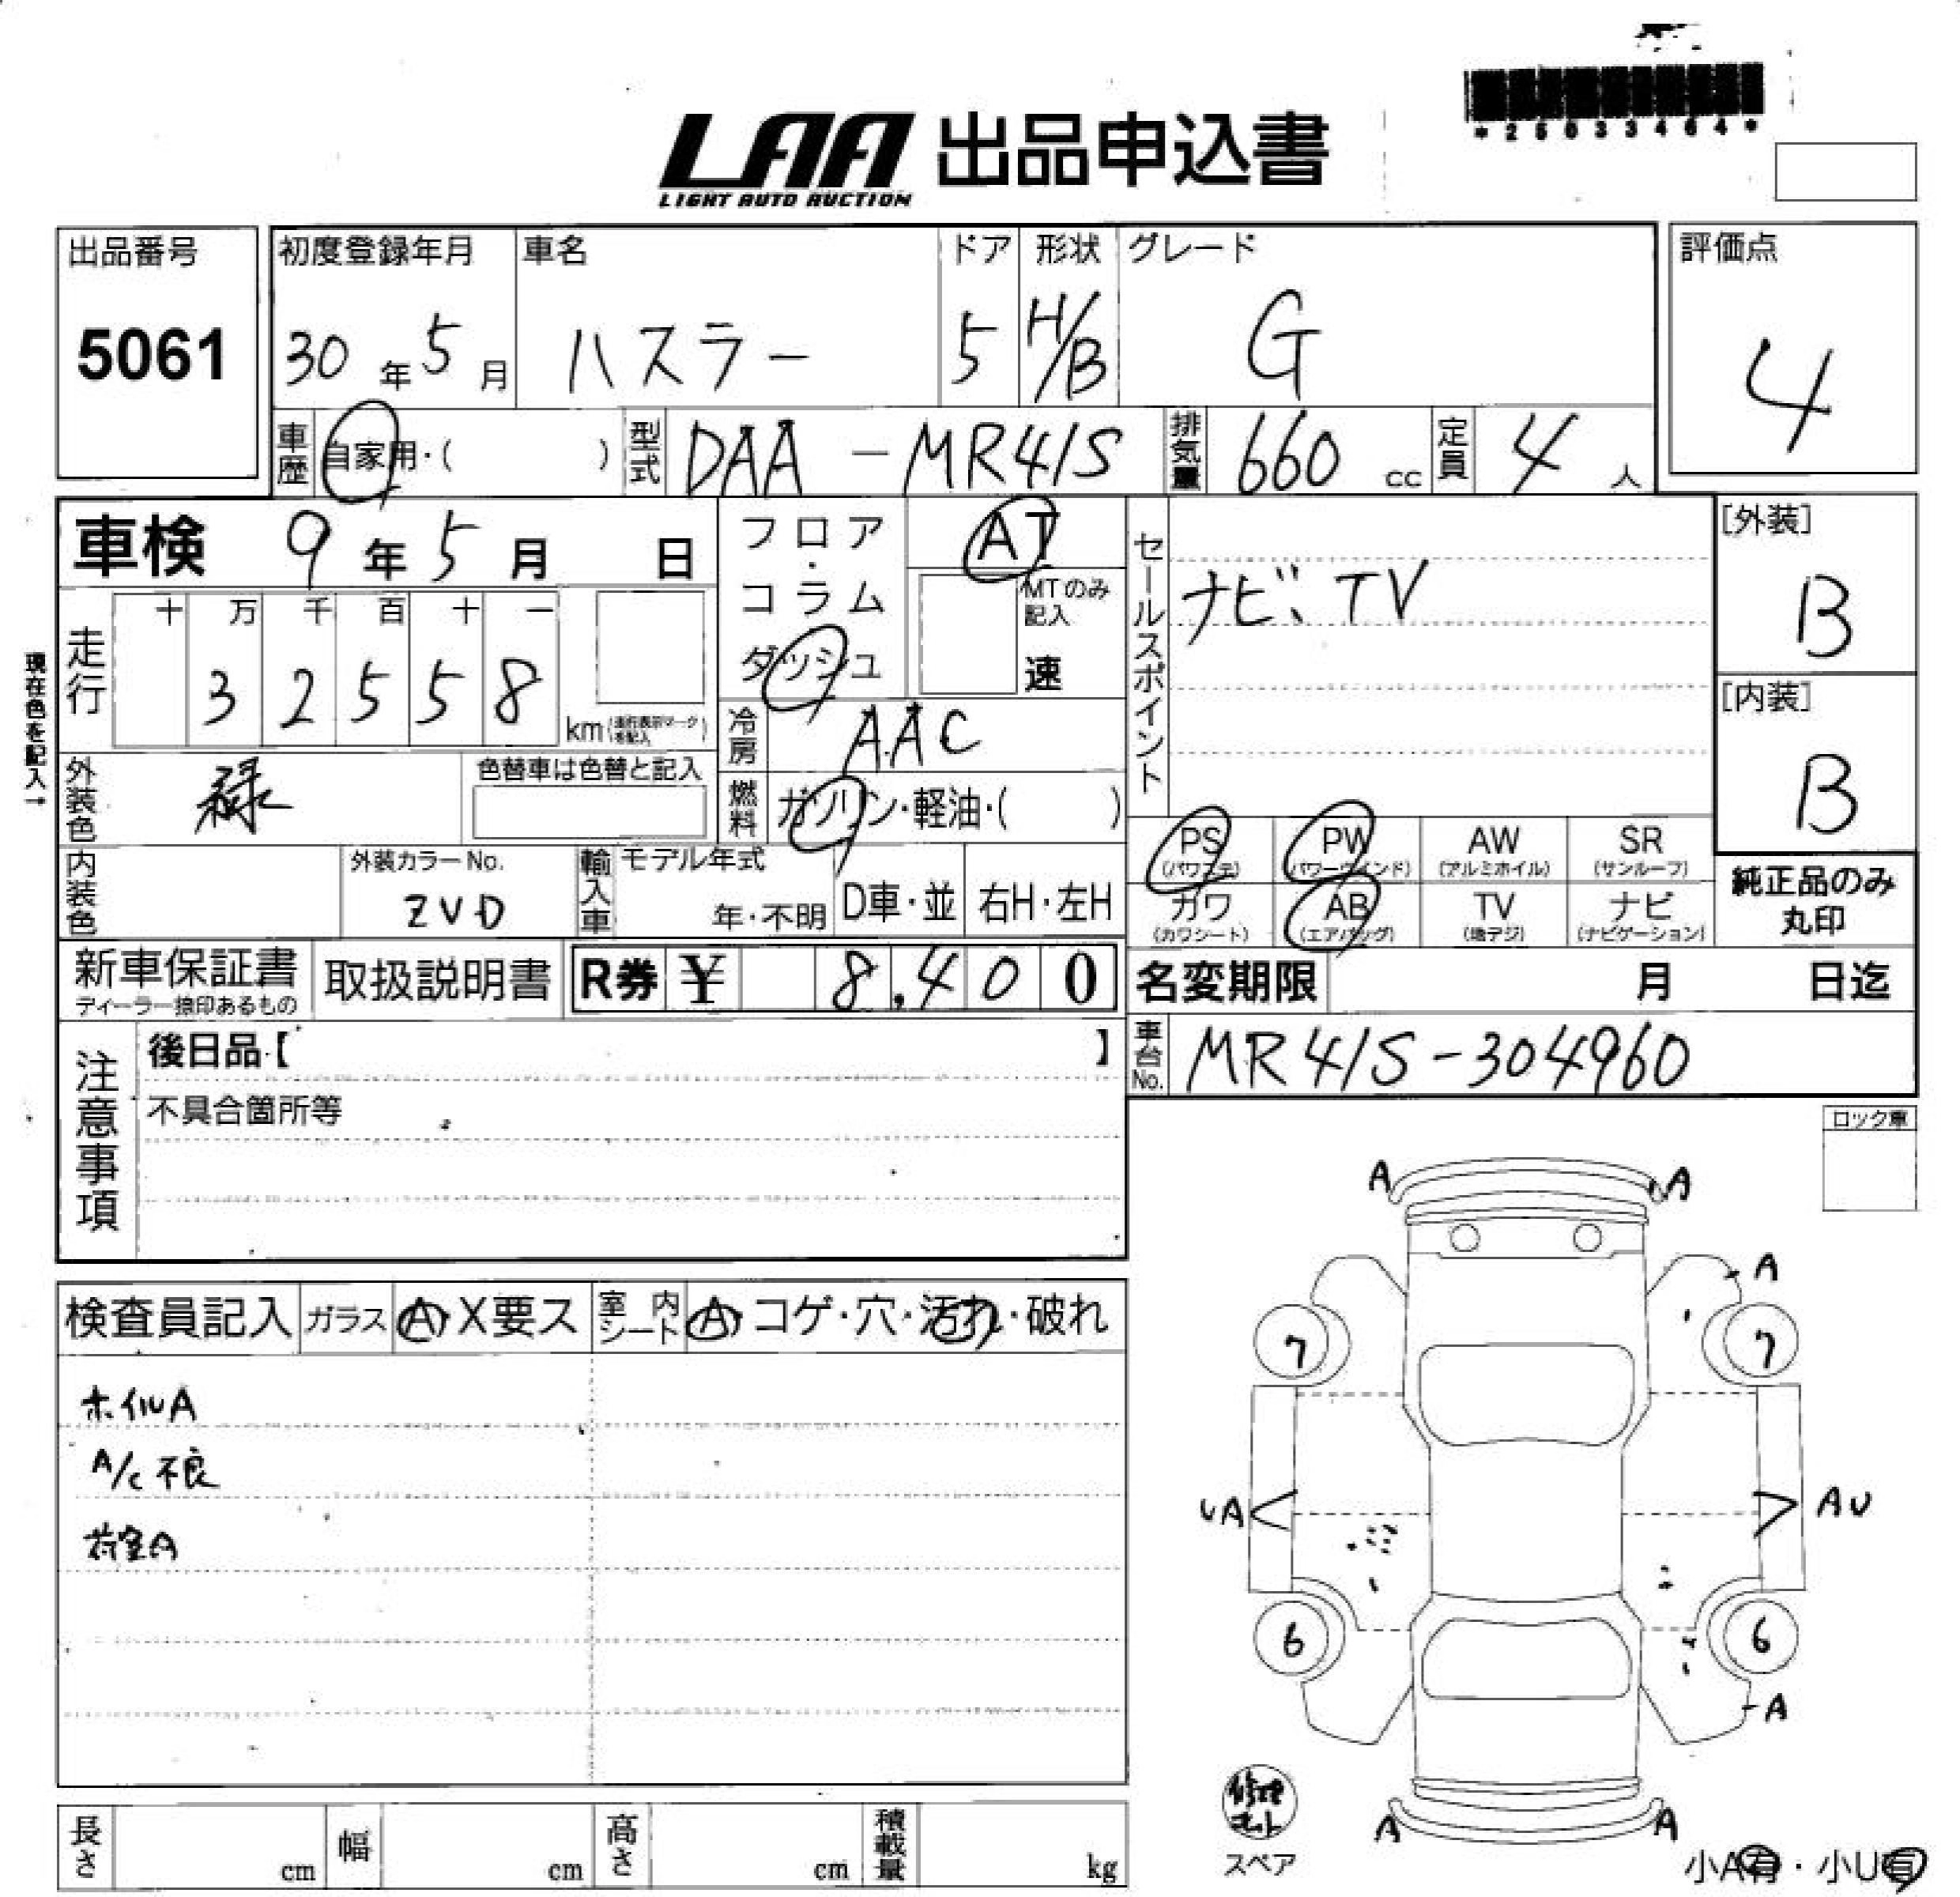 *25033464*
LAA 出品申込書
LIGHT AUTO AUCTION
出品番号
5061
初度登録年月
30年5月
車名
ハスラー
ドア
5
形状
H/B
グレード
G
評価点
4
車歴
自家用・( )
型式
DAA-MR41S
排気量
660 cc
定員
4 人
車検 9年5月 日
フロア・コラム
ダッシュ
AT
MTのみ記入
速
セールスポイント
ナビ、TV
[外装]
B
[内装]
B
現在色を記入→
走行
十 万 千 百 十 一
3 2 5 5 8
km(走行表示マークを記入)
冷房
AAC
燃料
ガソリン・軽油・( )
外装色
緑
色替車は色替と記入
内装色
外装カラーNo.
ZVD
輸入車
モデル年式
年・不明
D車・並
右H・左H
PS (パワステ)
PW (パワーウインド)
AW (アルミホイル)
SR (サンルーフ)
カワ (カワシート)
AB (エアバッグ)
TV (地デジ)
ナビ (ナビゲーション)
純正品のみ
丸印
新車保証書
ディーラー捺印あるもの
取扱説明書
R券 ¥ 8,400
名変期限 月 日迄
車台No.
MR41S-304960
注意事項
後日品【 】
不具合箇所等
ロック車
検査員記入
ガラス
A・X要ス
室内シート
A・コゲ・穴・汚れ・破れ
ホイルA
A/C不良
荷室A
A
A
A
7
7
UA
AU
6
6
A
修理キット
スペア
A
A
小A有・小U有
長さ cm
幅 cm
高さ cm
積載量 kg